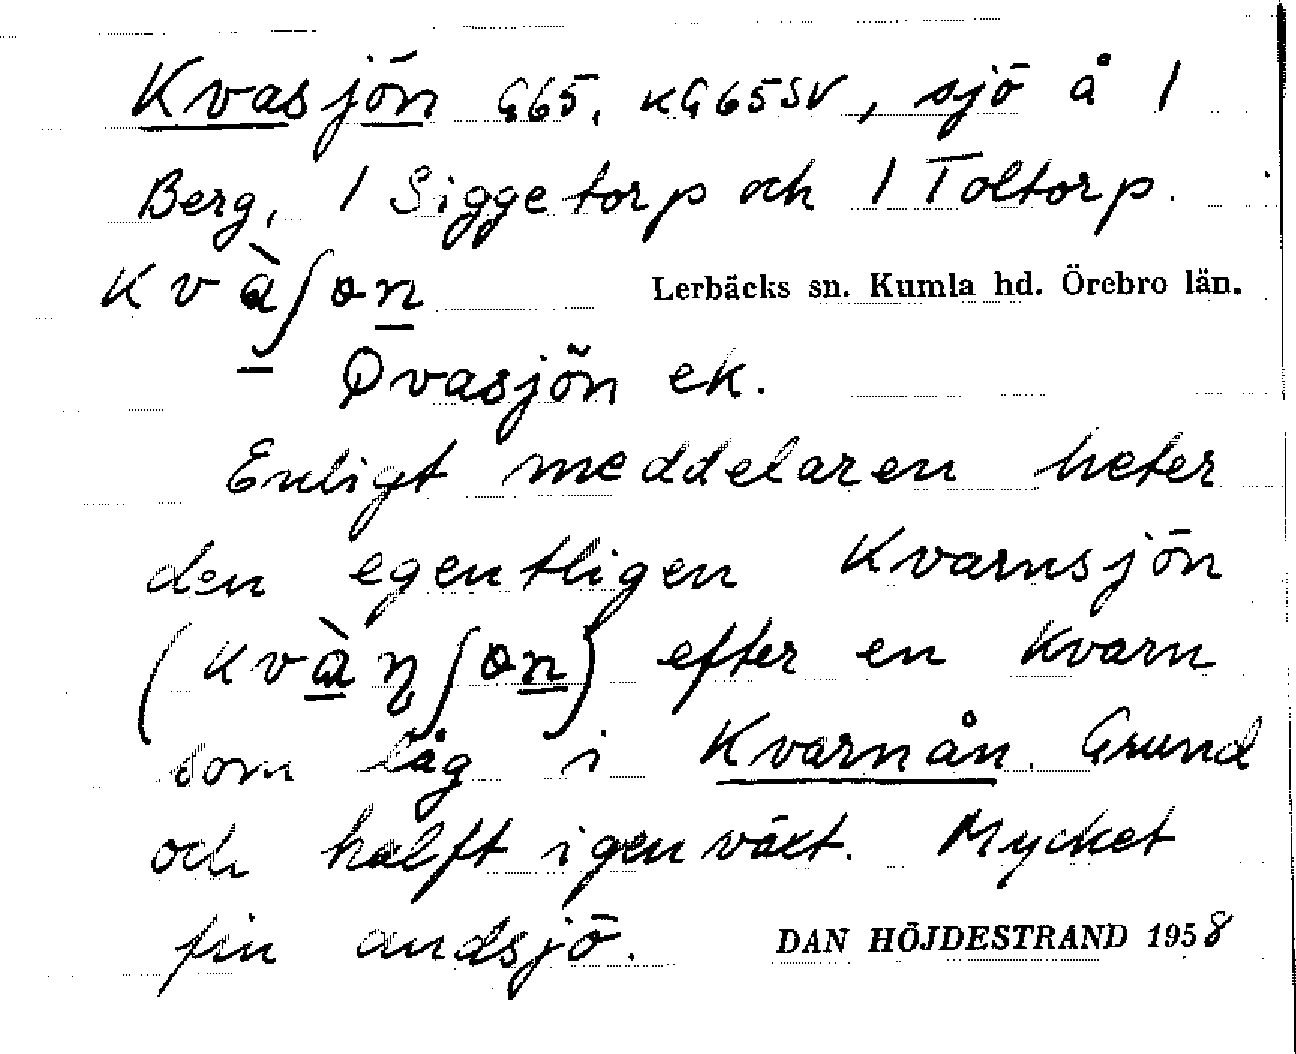 Kvasjön G65, KG65SV, sjö å 1
Berg, 1 Siggetorp och 1 Toltorp.
kvàʃɵn
Lerbäcks sn. Kumla hd. Örebro län.
Qvasjön ek.
Enligt meddelaren heter
den egentligen Kvarnsjön
(kvàɳʃɵn) efter en kvarn
som låg i Kvarnån. Grund
och halft igenväxt. Mycket
fin andsjö.
DAN HÖJDESTRAND 1958